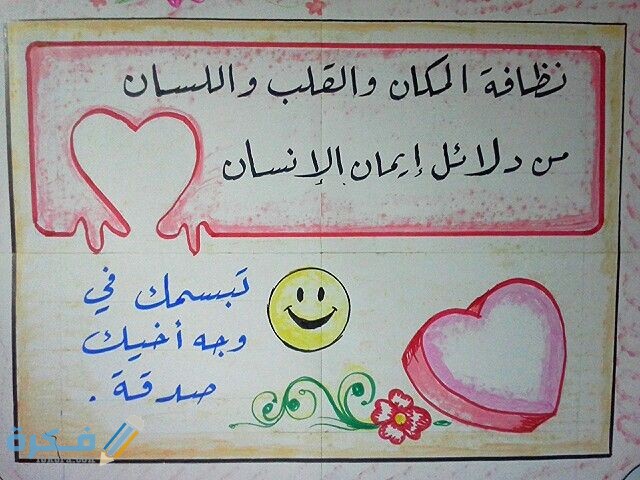 نظافة المكان والقلب واللسان
من دلائل إيمان الإنسان
تبسمك في
وجه أخيك
صدقة.
فكرة